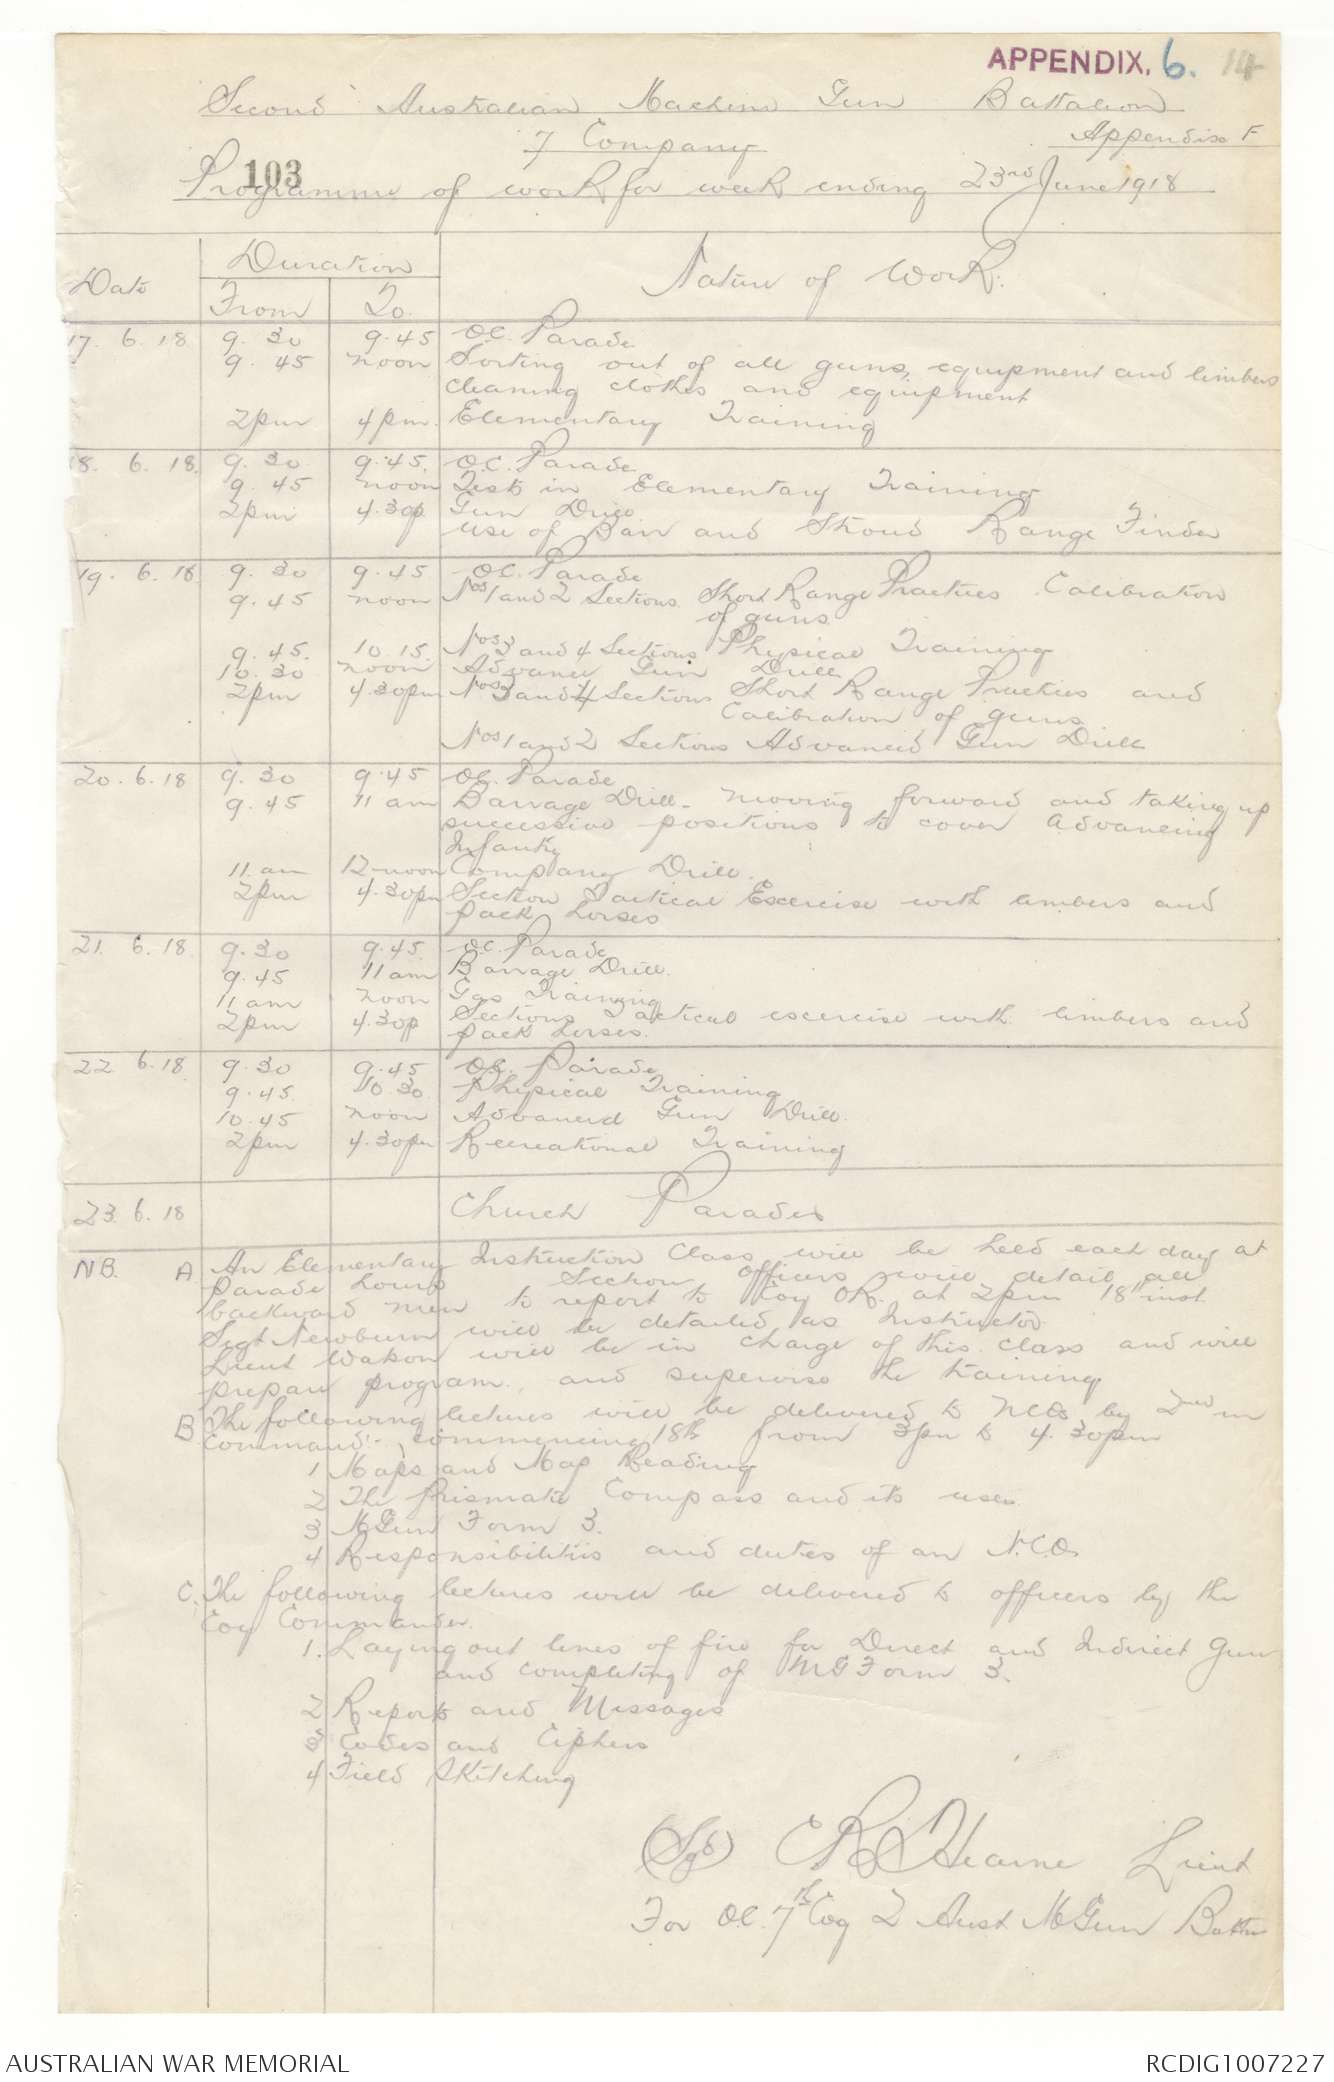 APPENDIX. 6. 14
Second Australian Machine Gun Battalion
7 Company Appendix F
103
Programme of work for week ending 23rd June 1918
Date Duration Nature of Work.
From To.
17. 6. 18 9. 30 9.45 O.C. Parade
9. 45 noon Sorting out of all guns, equipment and limbers
cleaning clothes and equipment
2pm 4pm. Elementary Training
18. 6. 18. 9. 30 9.45. O.C. Parade
9. 45 noon Tests in Elementary Training
2pm 4.30p Gun Drill
use of Barr and Stroud Range Finder
19. 6. 18. 9. 30 9.45 O.C. Parade
9. 45 noon Nos 1 and 2 Sections Short Range Practices Calibration
of guns
9. 45. 10.15. Nos 3 and 4 Sections Physical Training
10. 30 noon Advance Gun Drill
2pm 4.30pm Nos 3 and 4 Sections Short Range Practices and
Calibration of guns
Nos 1 and 2 Sections Advanced Gun Drill
20. 6. 18 9. 30 9.45 O.C. Parade
9. 45 11 am Barrage Drill - moving forward and taking up
successive positions to cover advancing
Infantry
11. am 12 noon Company Drill.
2pm 4.30pm Section Tactical Exercise with limbers and
pack horses
21. 6. 18. 9.30 9.45. O.C. Parade
9.45 11 am Barrage Drill.
11 am noon Gas Training
2pm 4.30p Sections Tactical exercise with limbers and
pack horses.
22 6.18. 9.30 9.45 O.C. Parade
9.45. 10.30. Physical Training
10.45 noon Advanced Gun Drill.
2pm 4.30pm Recreational Training
23. 6. 18 Church Parades
NB. A. An Elementary Instruction Class will be held each day at
parade hours Section Officers will detail all
backward men to report to Coy OR. at 2pm 18th inst.
Sergt Newburn will be detailed as Instructor
Lieut Watson will be in charge of this class and will
prepare program, and supervise the training
B. The following lectures will be delivered to NCOs by 2nd in
Command :- commencing 18th from 3pm to 4.30pm
1 Maps and Map Reading
2 The Prismatic Compass and its uses.
3 M Gun Form 3.
4 Responsibilities and duties of an N.C.O.
C. The following lectures will be delivered to officers by the
Coy Commander.
1. Laying out lines of fire for Direct and Indirect Gun
and completing of MG Form 3.
2 Reports and Messages
3 Codes and Ciphers
4 Field Sketching
(Sgd) C R Hearne Lieut
For O.C. 7th Coy 2 Aust M Gun Battn
AUSTRALIAN WAR MEMORIAL RCDIG1007227